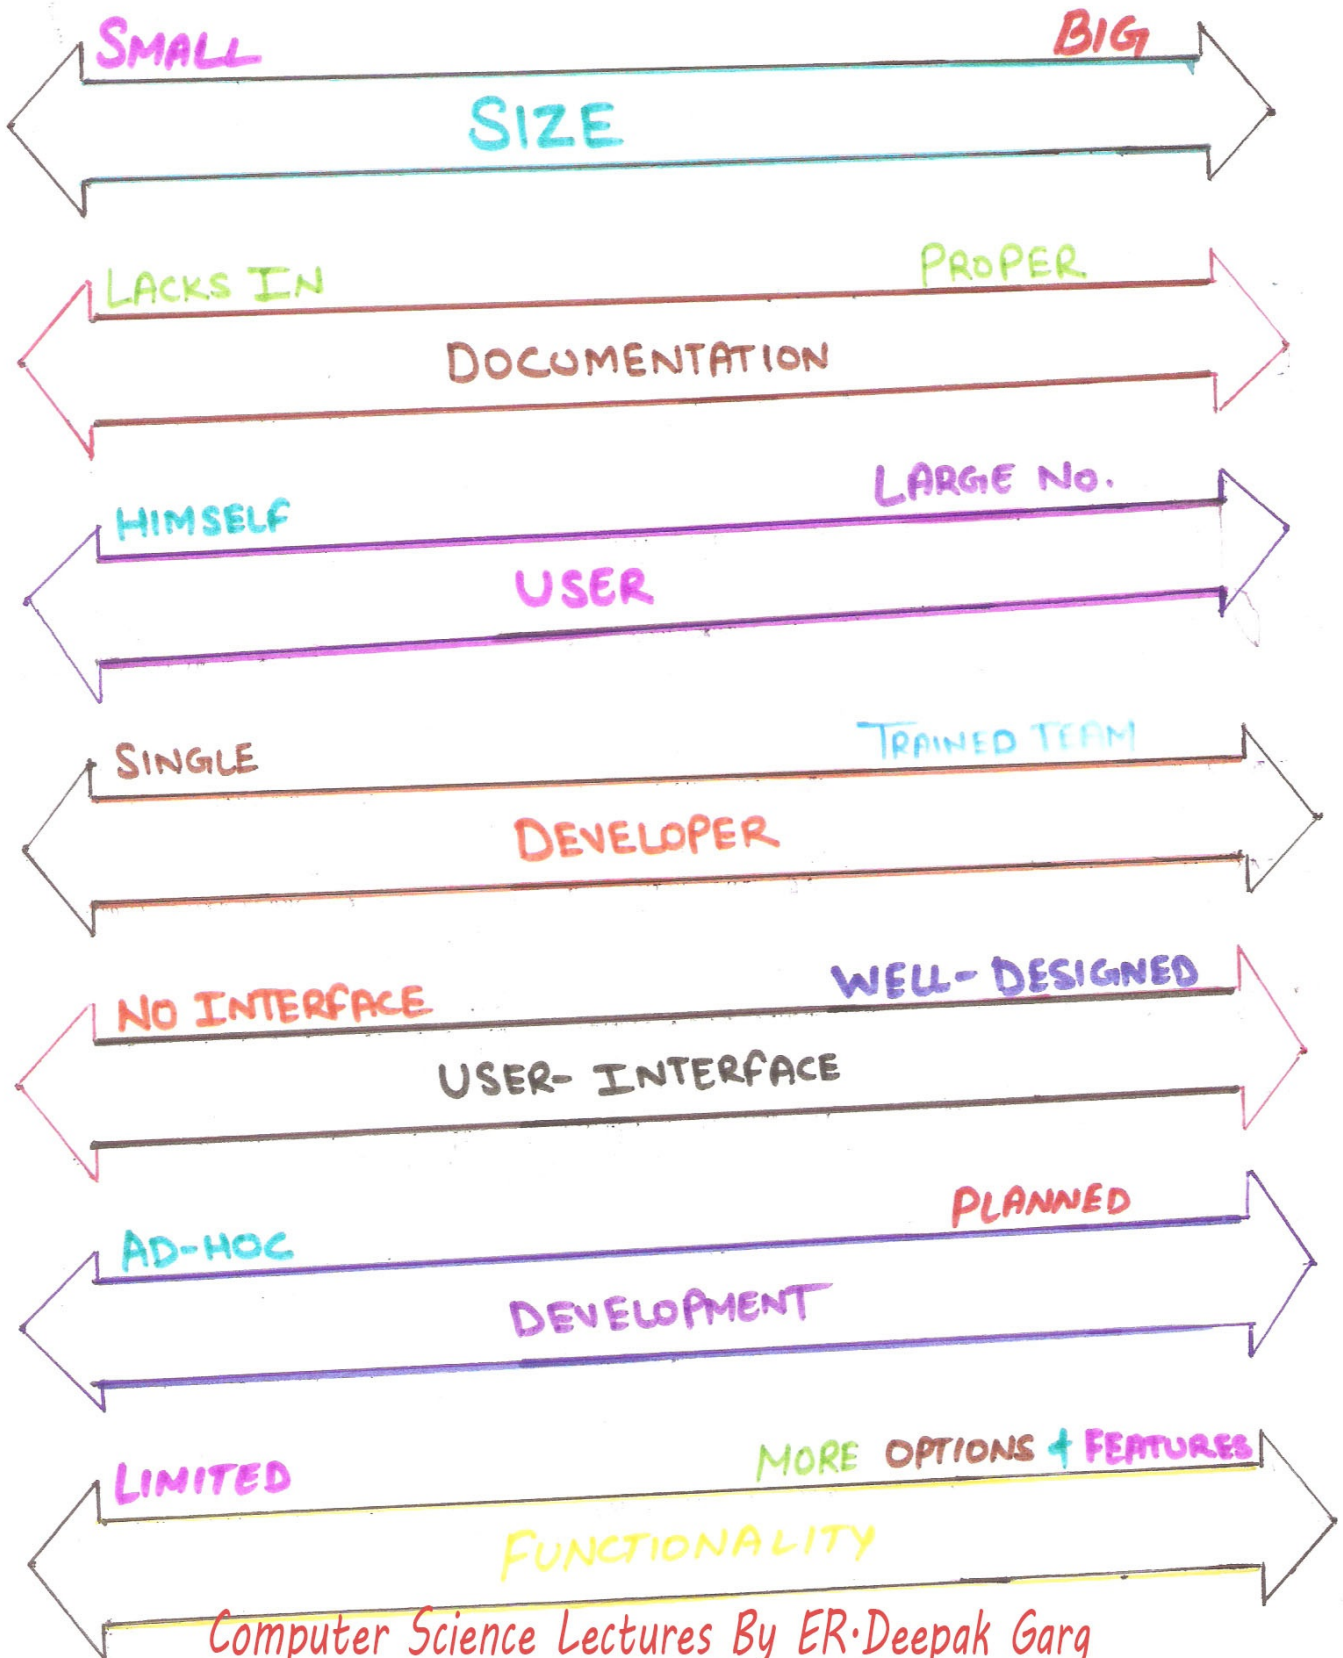 SMALL BIG
SIZE
LACKS IN PROPER
DOCUMENTATION
HIMSELF LARGE NO.
USER
SINGLE TRAINED TEAM
DEVELOPER
NO INTERFACE WELL-DESIGNED
USER-INTERFACE
AD-HOC PLANNED
DEVELOPMENT
LIMITED MORE OPTIONS & FEATURES
FUNCTIONALITY
Computer Science Lectures By ER.Deepak Garg